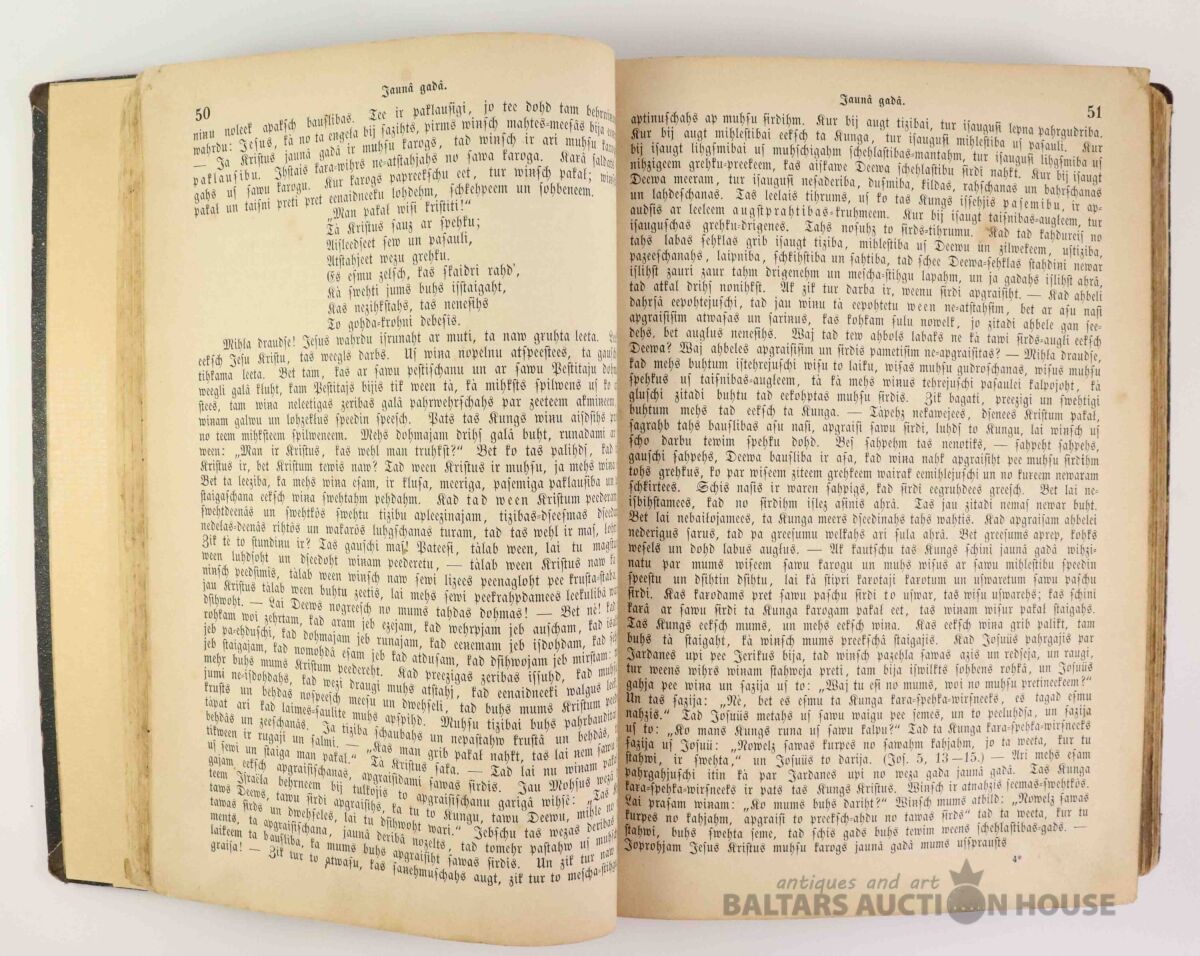 50
Jaunâ gadâ.
ninu noleek apakſch bauſlibas. Tee ir paklauſigi, jo tee dohd tam behrniņam
wahrdu: Jeſus, kâ no ta engeļa bij ſazihts, pirms winſch mahtes-meeſâs bija
— Ja Kriſtus jaunâ gadâ ir muhſu karogs, tad winſch ir ari muhſu
paklauſibu. Ihſtais kara-wihrs ne-atſtahjahs no ſawa karoga. Karâ ſaldats
gahs uſ ſawu karogu. Kur karogs papreekſchu eet, tur winſch pakaļ;
pakaļ un taiſni preti pret eenaidneeku lohdehm, ſchkehpeem un ſohbeneem.
„Man pakaļ wiſi kriſtiti!“
Tâ Kriſtus ſauz ar ſpehku;
Aiſleedſeet ſew un paſauli,
Atſtahjeet wezu grehku.
Es eſmu zeļſch, kas ſkaidri rahd’,
Kâ ſwehti jums buhs iſſtaigaht,
Kas nezihkſtahs, tas neneſihs
To gohda-krohni debeſis.
Mihļa draudſe! Jeſus wahrdu iſrunaht ar muti, ta naw gruhta leeta.
eekſch Jeſu Kriſtu, tas weegls darbs. Uſ wina nopelnu atſpeeſtees, ta
tihkama leeta. Bet tam, kas ar ſawu peſtiſchanu un ar ſawu Peſtitaju
weegli galâ kluht, kam Peſtitajs bijis tik ween tâ, kâ mihkſts ſpilwens uſ ko
ſtees, tam wina neleetigas zeribas galâ pahrwehrſchahs par zeeteem akmineem,
winam galwu un lohzekļus ſpeedin ſpeeſch. Pats tas Kungs winu aiſdſihs
no teem mihkſteem ſpilweneem. Mehs dohmajam drihſ galâ buht, runadami
ween: „Man ir Kriſtus, kas wehl man truhkſt?“ Bet ko tas palihdſ, kad
Kriſtus ir, bet Kriſtum tewis naw? Tad ween Kriſtus ir muhſu, ja mehs
Bet ta leeziba, ka mehs wina eſam, ir kluſa, meeriga, paſemiga paklauſiba un
ſtaigaſchana eekſch wina ſwehtahm pehdahm. Kad tad ween Kriſtum peederam,
ſwehtdeenâs un ſwehtkôs ſwehtu tizibu apleezinajam, tizibas-dſeeſmas
nedeļas-deenâs rihtôs un wakarôs luhgſchanas turam, tad tas wehl ir maſ,
Zik tè to ſtundinu ir? Tas gauſchi maſ! Pateeſi, tàlab ween, lai tu
ween luhdſoht un dſeedoht winam peederetu, — tàlab ween Kriſtus naw
ninch peedſimis, tàlab ween winſch naw ſewi lizees peenagloht pee kruſta-ſtaba,
jau Kriſtus tàlab ween buhtu zeetis, lai mehs ſewi peekrahpdamees
dſihwoht. — Lai Deews nogreeſch no mums tahdas dohmas! — Bet nè! kad
rohkam woi zehrtam, kad aram jeb ezejam, kad wehrpjam jeb auſcham, kad
jeb pa-ehduſchi, kad dohmajam jeb runajam, kad eenemam jeb iſdohdam, kad
jeb ſtaigajam, kad nomohdâ eſam jeb kad atduſam, kad dſihwojam jeb mirſtam:
mehr buhs mums Kriſtum peedereht. Kad preezigas zeribas iſſuhd, kad
jumi ne-iſdohdahs, kad wezi draugi muhs atſtahj, kad eenaidneeki walgus
kruſts un behdas noſpeeſch meeſu un dwehſeli, tad buhs mums Kriſtum
tapat ari kad laimes-ſaulite muhs apſpihd. Muhſu tizibai buhs pahrbauditai
behdâs un zeeſchanâs. Ja tiziba ſchaubahs un nepaſtahw kruſtâ un behdâs,
tikween ir rugaji un ſalmi. — „Kas man grib pakaļ nahkt, tas lai nem ſawu
uſ ſewi un ſtaiga man pakaļ.“ Tâ Kriſtus ſaka. — Tad lai nu winam
gajam eekſch apgraiſiſchanas, apgraiſidami ſawas ſirdis. Jau Mohſus wezâ
teem Iſraëļa behrneem bij tulkojis to apgraiſiſchanu garigâ wihſè: „Tas
taws Deews, tawu ſirdi apgraiſihs, ka tu to Kungu, tawu Deewu, mihļo no
tawas ſirds un dwehſeles, lai tu dſihwoht wari.“ Jebſchu tas wezas deribas
ments, ta apgraiſiſchana, jaunâ deribâ nozelts, tad tomehr paſtahw uſ
laikeem ta bauſliba, ka mums buhs apgraiſiht ſawas ſirdis. Un zik tur naw
graiſa! — Zik tur to atwaſu, kas ſanehmuſchahs augt, zik tur to
Jaunâ gadâ.
51
aptinuſchahs ap muhſu ſirdihm. Kur bij augt tizibai, tur iſauguſi lepna pahrgudriba.
Kur bij augt mihleſtibai eekſch ta Kunga, tur iſauguſi mihleſtiba uſ paſauli. Kur
bij iſaugt lihgſmibai uſ muhſchigahm ſchehlaſtibas-mantahm, tur iſauguſi lihgſmiba uſ
nihzigeem grehku-preekeem, kas aiſkawe Deewa ſchehlaſtibu ſirdi nahkt. Kur bij iſaugt
Deewa meeram, tur iſauguſi neſaderiba, duſmiba, kildas, rahſchanas un bahrſchanas
un lahdeſchanas. Tas leelais tihrums, uſ ko tas Kungs iſſehjis paſemibu, ir ap-
audſis ar leeleem augſtprahtibas-kruhmeem. Kur bij iſaugt taiſnibas-augleem, tur
iſauguſchas grehku-drigenes. Tahs noſuhz to ſirds-tihrumu. Kad tad kahdureiſ no
tahs labas ſehklas grib iſaugt tiziba, mihleſtiba uſ Deewu un zilwekeem, uſtiziba,
pazeeſchanahs, laipniba, ſchkihſtiba un ſahtiba, tad ſchee Deewa-ſehklas ſtahdini newar
iſlihſt zauri zaur tahm drigenehm un meſcha-ſtihgu lapahm, un ja gadahs iſlihſt ahrâ,
tad atkal drihſ nonihkſt. Ak zik tur darba ir, weenu ſirdi apgraiſiht. — Kad ahbeli
dahrſâ eepohtejuſchi, tad jau winu tà eepohtetu ween ne-atſtahjam, bet ar aſu naſi
apgraiſiſim atwaſas un ſarinus, kas kohkam ſulu nowelk, jo zitadi ahbele gan ſee-
dehs, bet augļus neneſihs. Waj tad tew ahbols labaks ne kâ tawi ſirds-augļi eekſch
Deewa? Waj ahbeles apgraiſiſim un ſirdis pametiſim ne-apgraiſitas? — Mihļa draudſe,
kad mehs buhtum iſtehrejuſchi wiſu to laiku, wiſas muhſu gudroſchanas, wiſus muhſu
ſpehkus uſ taiſnibas-augleem, tà kâ mehs winus tehrejuſchi paſaulei kalpojoht, kâ
gluſchi zitadi buhtu tad eekohptas muhſu ſirdis. Zik bagati, preezigi un ſwehtigi
buhtum mehs tad eekſch ta Kunga. — Tàpehz nekawejees, dſenees Kriſtum pakaļ,
ſagrahb tahs bauſlibas aſu naſi, apgraiſi ſawu ſirdi, luhdſ to Kungu, lai winſch uſ
ſcho darbu tewim ſpehku dohd. Beſ ſahpehm tas nenotiks, — ſahpeht ſahpehs,
gauſchi ſahpehs, Deewa bauſliba ir aſa, kad wina nahk apgraiſiht pee muhſu ſirdihm
tohs grehkus, ko par wiſeem ziteem grehkeem wairak eemihlejuſchi un no kureem newaram
ſchkirtees. Schis naſis ir waren ſahpigs, kad ſirdi eegruhdees greeſch. Bet lai ne-
iſbihſtamees, kad no ſirdihm iſlez aſinis ahrâ. Tas jau zitadi nemaſ newar buht.
Bet lai nebailojamees, ta Kunga meers dſeedinahs tahs wahtis. Kad apgraiſam ahbelei
nederigus ſarus, tad pa greeſumu welkahs ari ſula ahrâ. Bet greeſums aprep, kohks
weſels un dohd labus augļus. — Ak kautſchu tas Kungs ſchini jaunâ gadâ wihzi-
natu par mums wiſeem ſawu karogu un muhs wiſus ar ſawu mihleſtibu ſpeedin
ſpeeſtu un dſihtin dſihtu, lai kâ ſtipri karotaji karotum un uſwaretum ſawu paſchu
ſirdi. Kas karodams pret ſawu paſchu ſirdi to uſwar, tas wiſu uſwarehs; kas ſchini
karâ ar ſawu ſirdi ta Kunga karogam pakaļ eet, tas winam wiſur pakaļ ſtaigahs.
Tas Kungs eekſch mums, un mehs eekſch wina. Kas eekſch wina grib palikt, tam
buhs tà ſtaigaht, kâ winſch mums preekſchâ ſtaigajis. Kad Joſuüs pahrgajis par
Jardanes upi pee Jerikus bija, tad winſch pazehla ſawas azis un redſeja, un raugi,
tur weens wihrs winam ſtahweja preti, tam bija iſwilkts ſohbens rohkâ, un Joſuüs
gahja pee wina un ſazija uſ to: „Waj tu eſi no mums, woi no muhſu pretineekeem?“
Un tas ſazija: „Nè, bet es eſmu ta Kunga kara-ſpehka-wirſneeks, es tagad eſmu
nahzis.“ Tad Joſuüs metahs uſ ſawu waigu pee ſemes, un to peeluhdſa, un ſazija
uſ to: „Ko mans Kungs runa uſ ſawu kalpu?“ Tad ta Kunga kara-ſpehka-wirſneeks
ſazija uſ Joſuü: „Nowelz ſawas kurpes no ſawahm kahjahm, jo ta weeta, kur tu
ſtahwi, ir ſwehta,“ un Joſuüs to darija. (Joſ. 5, 13—15.) — Ari mehs eſam
pahrgahjuſchi itin kâ par Jardanes upi no weza gada jaunâ gadâ. Tas Kunga
kara-ſpehka-wirſneeks ir pats tas Kungs Kriſtus. Winſch ir atnahzis ſeemas-ſwehtkôs.
Lai praſam winam: „Ko mums buhs dariht?“ Winſch mums atbild: „Nowelz ſawas
kurpes no kahjahm, apgraiſi to preekſch-ahdu no tawas ſirds“ tad ta weeta, kur tu
ſtahwi, buhs ſwehta ſeme, tad ſchis gads buhs tewim weens ſchehlaſtibas-gads. —
Joprohjam Jeſus Kriſtus muhſu karogs jaunâ gadâ mums uſſprauſts
4*
antiques and art
BALTARS AUCTION HOUSE